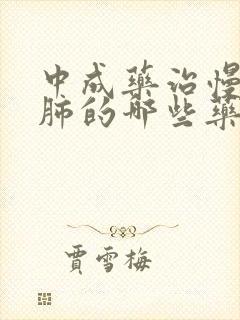 中成药治慢
肺的那些药
贾雪梅